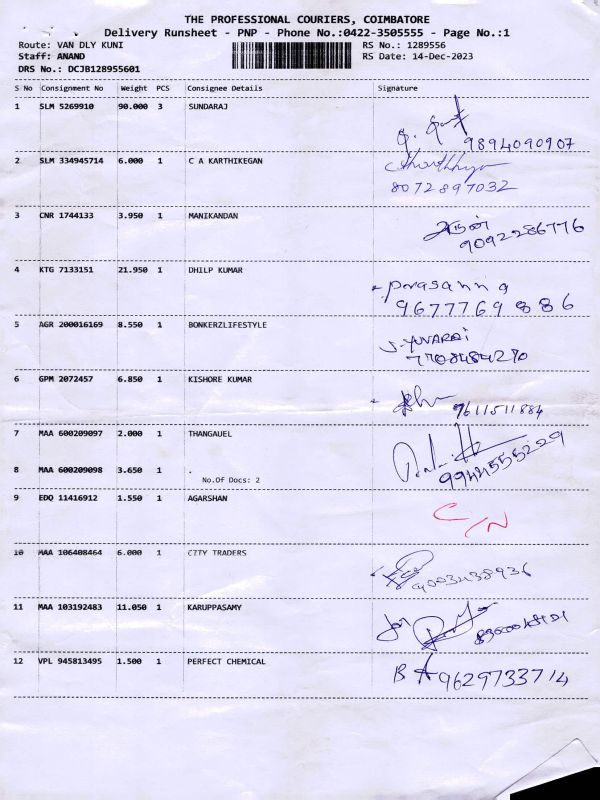 THE PROFESSIONAL COURIERS, COIMBATORE
Delivery Runsheet - PNP - Phone No.:0422-3505555 - Page No.:1
Route: VAN DLY KUNI RS No.: 1289556
Staff: ANAND RS Date: 14-Dec-2023
DRS No.: DCJB128955601
S No Consignment No Weight PCS Consignee Details Signature
1 SLM 5269910 90.000 3 SUNDARAJ
9894090907
2 SLM 334945714 6.000 1 C A KARTHIKEGAN
8072897032
3 CNR 1744133 3.950 1 MANIKANDAN
9092286776
4 KTG 7133151 21.950 1 DHILP KUMAR
prasanna
9677769886
5 AGR 200016169 8.550 1 BONKERZLIFESTYLE
J. YUVARAJ
7708484270
6 GPM 2072457 6.850 1 KISHORE KUMAR
7611511884
7 MAA 600209097 2.000 1 THANGAUEL
9944555229
8 MAA 600209098 3.650 1 .
No.Of Docs: 2
9 EDQ 11416912 1.550 1 AGARSHAN
C/N
10 MAA 106408464 6.000 1 CITY TRADERS
11 MAA 103192483 11.050 1 KARUPPASAMY
12 VPL 945813495 1.500 1 PERFECT CHEMICAL
9629733714